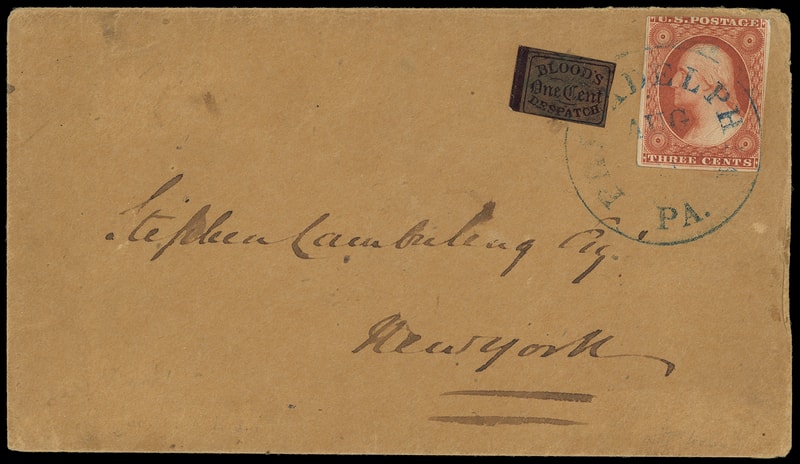 U.S. POSTAGE
THREE CENTS
BLOOD'S
One Cent
DESPATCH
PHILADELPHIA
AUG
PA.
Stephen Cambreleng Esq.
New York